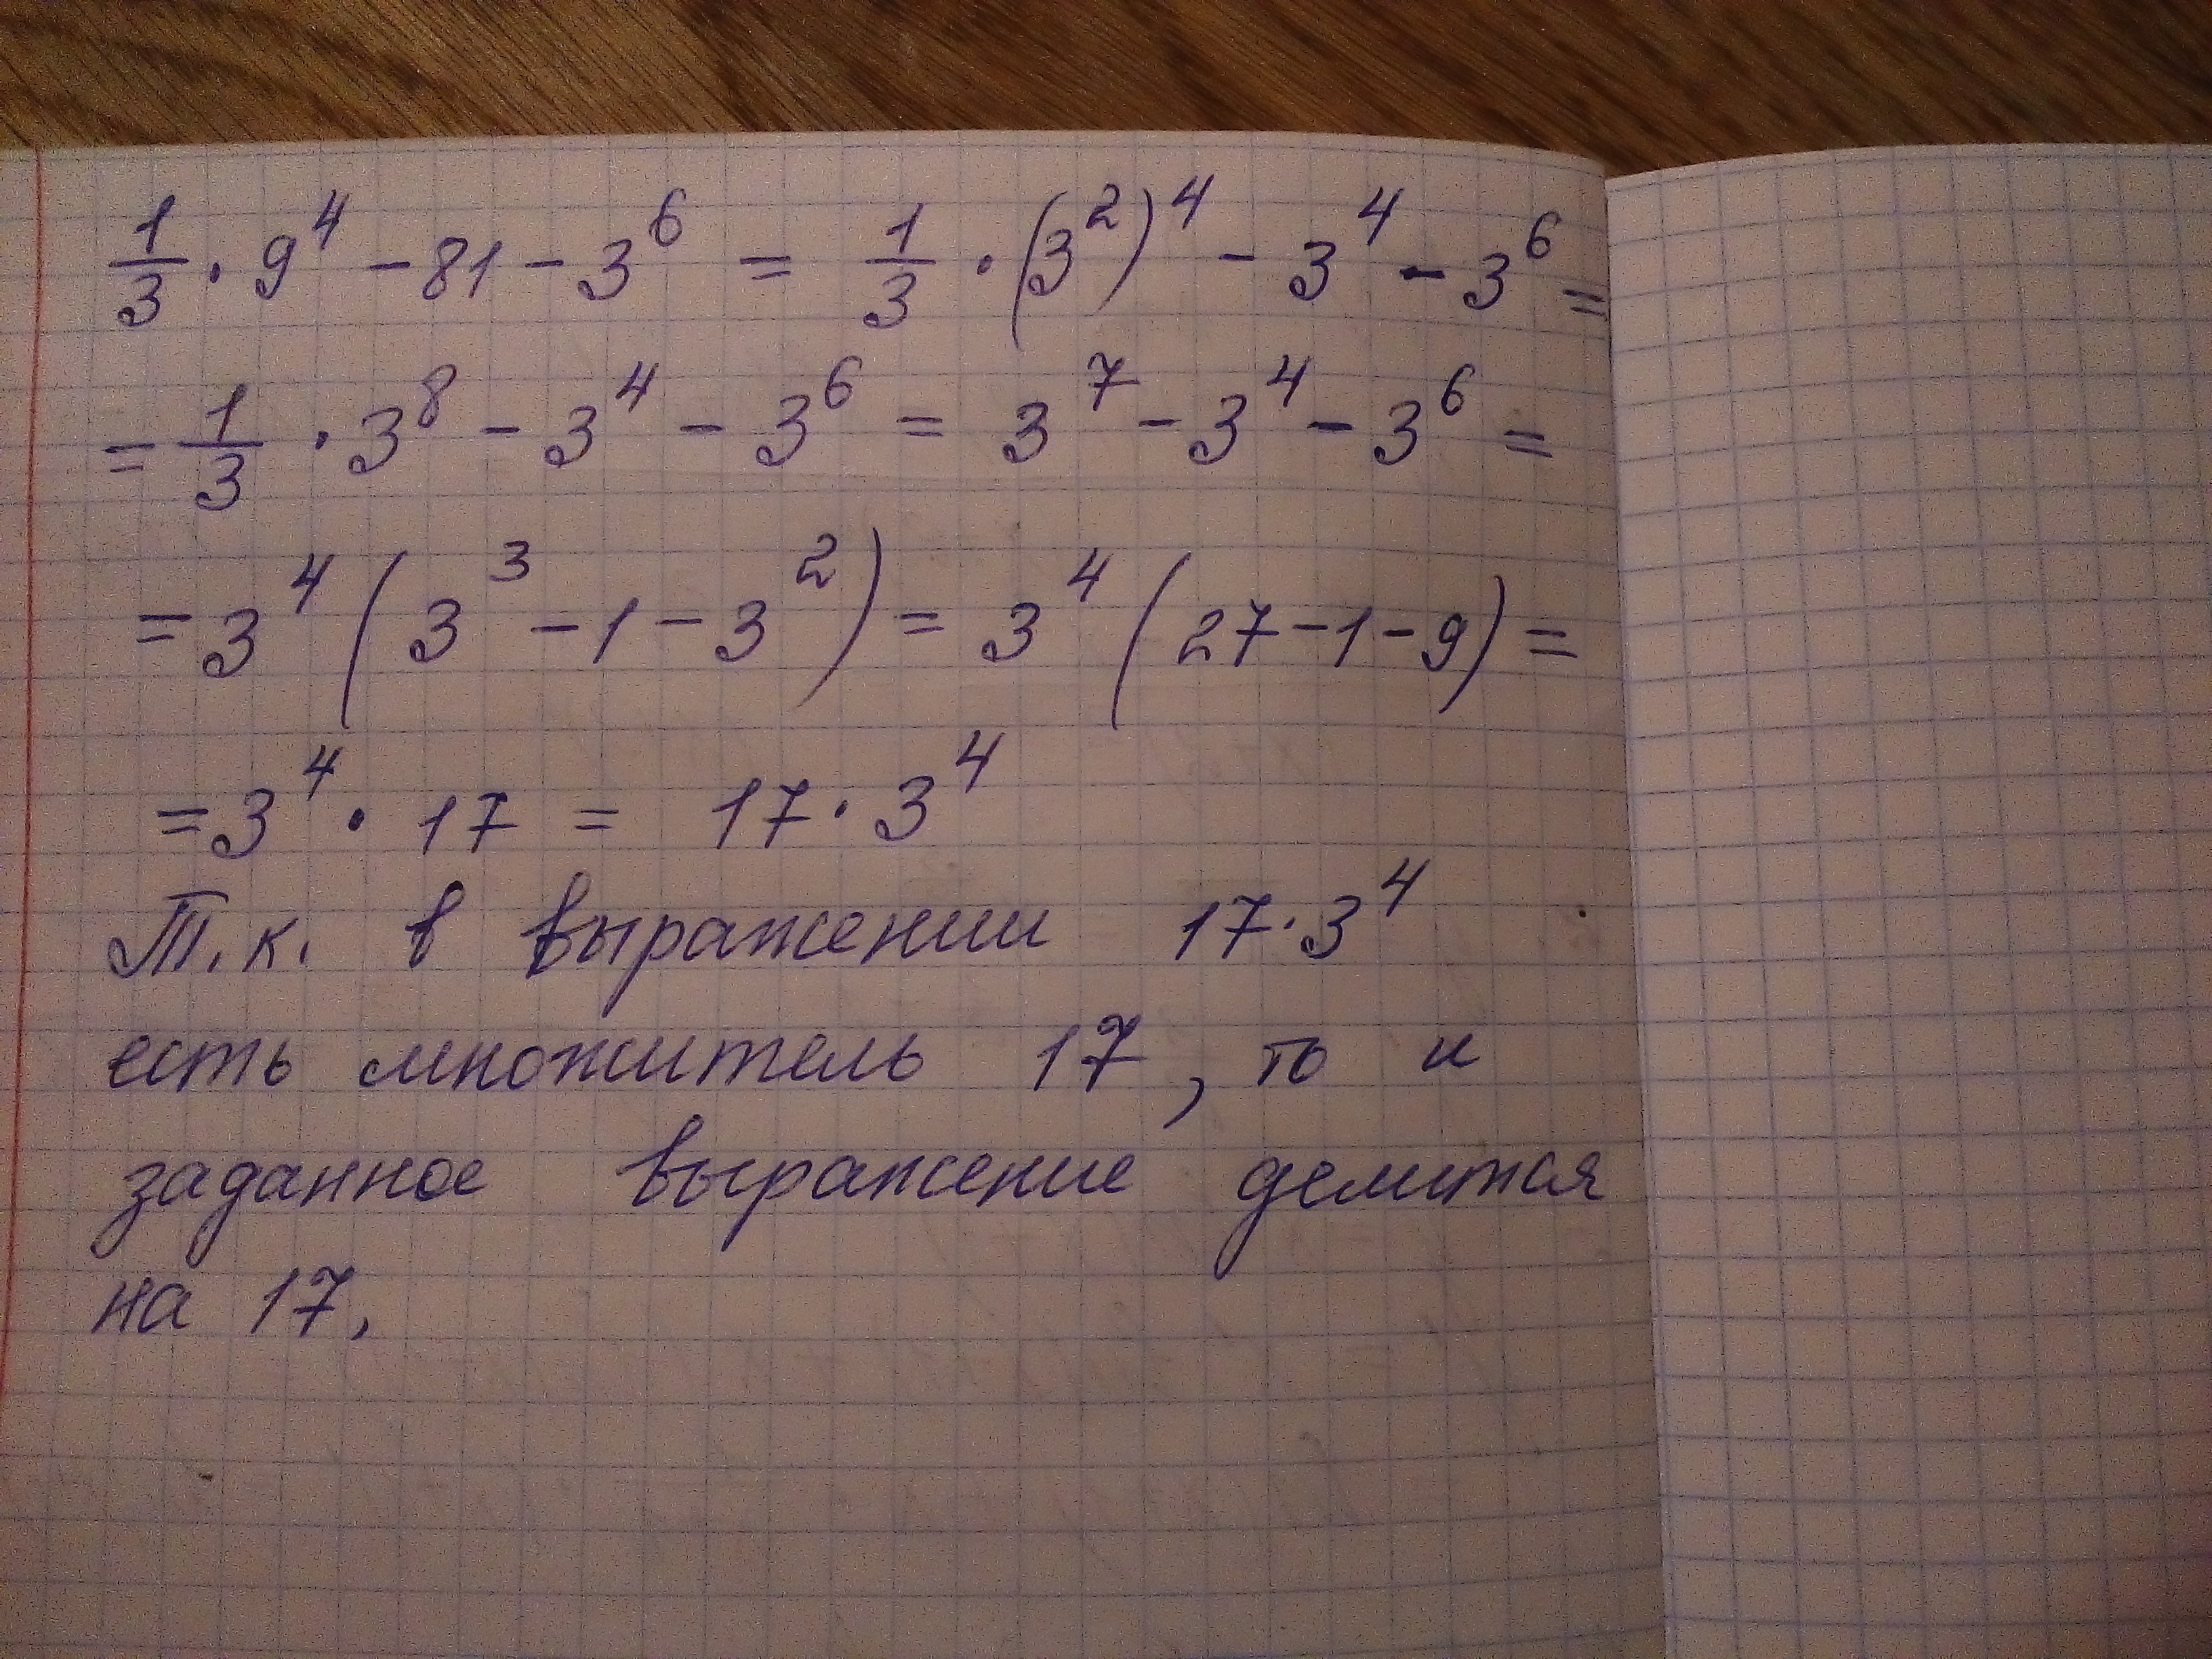 1/3 · 9⁴ − 81 − 3⁶ = 1/3 · (3²)⁴ − 3⁴ − 3⁶ =
= 1/3 · 3⁸ − 3⁴ − 3⁶ = 3⁷ − 3⁴ − 3⁶ =
= 3⁴ (3³ − 1 − 3²) = 3⁴ (27 − 1 − 9) =
= 3⁴ · 17 = 17 · 3⁴
Т.к. в выражении 17·3⁴
есть множитель 17, то и
заданное выражение делится
на 17.